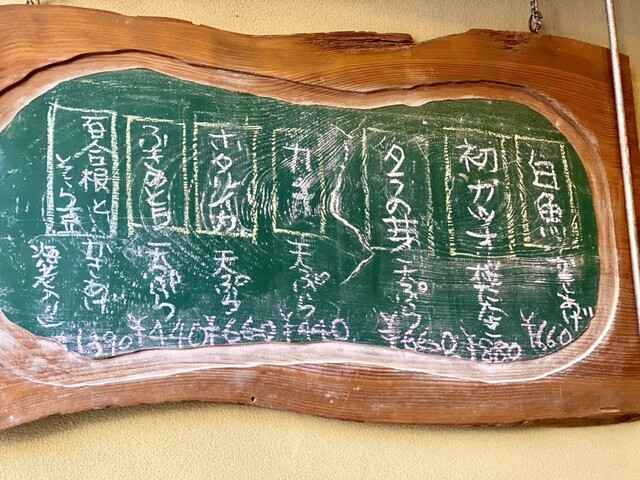 白魚 かきあげ ¥660
初ガツオ
タラの芽 天ぷら ¥660
天ぷら ¥440
ホタルイカ 天ぷら ¥660
ふきのとう 天ぷら ¥440
百合根と
そら豆 かきあげ
(海老入り) ¥1390